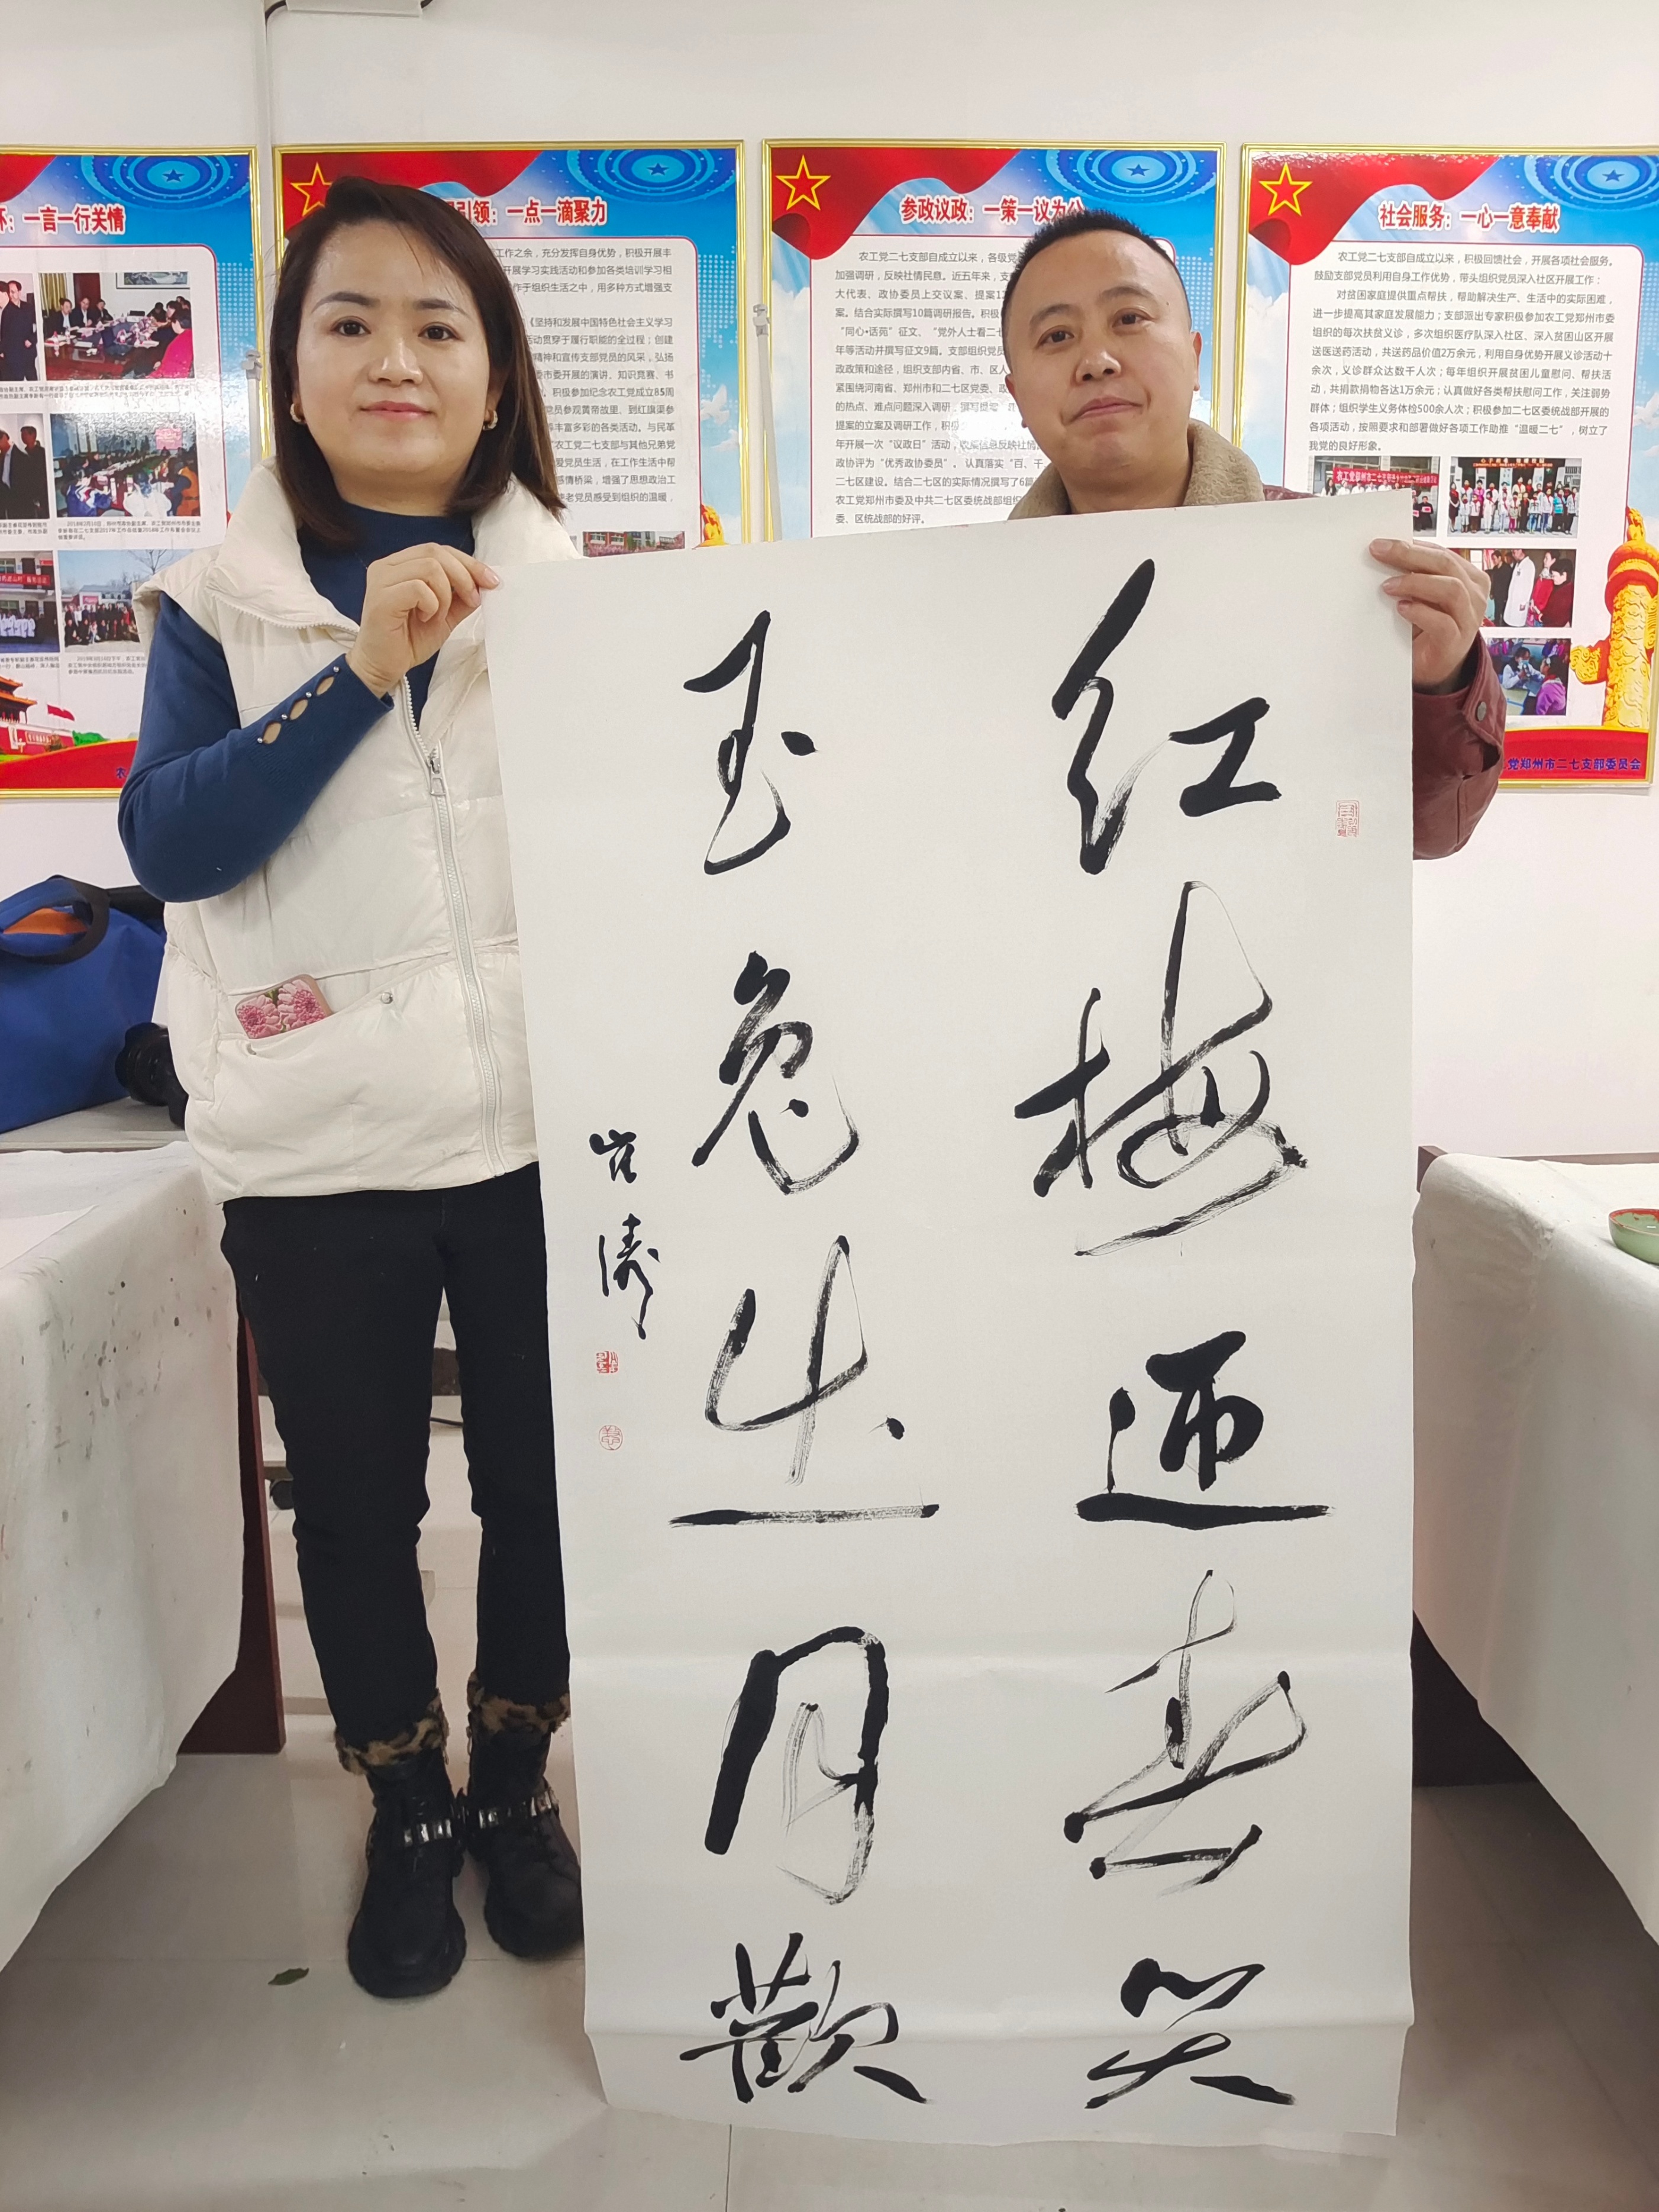 红梅迎春笑
玉兔出月歡
崔涛
一言一行关情
引领：一点一滴聚力
工作之余，充分发挥自身优势，积极开展丰
开展学习实践活动和参加各类培训学习相
作于组织生活之中，用多种方式增强支
《坚持和发展中国特色社会主义学习
活动贯穿于履行职能的全过程；创建
精神和宣传支部党员的风采，弘扬
委市委开展的演讲、知识竞赛、书
积极参加纪念农工党成立85周
党员参观黄帝故里、到红旗渠参
丰富多彩的各类活动。与民革
农工党二七支部与其他兄弟党
爱党员生活，在工作生活中帮
感情桥梁，增强了思想政治工
老党员感受到组织的温暖，
参政议政：一策一议为公
农工党二七支部自成立以来，各级党
加强调研，反映社情民意。近五年来，支
大代表、政协委员上交议案、提案1
案。结合实际撰写10篇调研报告。积极
“同心•话苑”征文、“党外人士看二七
年等活动并撰写征文9篇。支部组织党员
政政策和途径，组织支部内省、市、区人
紧围绕河南省、郑州市和二七区党委、政
的热点、难点问题深入调研，撰写提案
提案的立案及调研工作，积极
年开展一次“议政日”活动，收集信息反映社情
政协评为“优秀政协委员”。认真落实“百、千
二七区建设。结合二七区的实际情况撰写了6篇
农工党郑州市委及中共二七区委统战部组织
委、区统战部的好评。
社会服务：一心一意奉献
农工党二七支部自成立以来，积极回馈社会，开展各项社会服务。
鼓励支部党员利用自身工作优势，带头组织党员深入社区开展工作：
对贫困家庭提供重点帮扶，帮助解决生产、生活中的实际困难，
进一步提高其家庭发展能力；支部派出专家积极参加农工党郑州市委
组织的每次扶贫义诊，多次组织医疗队深入社区、深入贫困山区开展
送医送药活动，共送药品价值2万余元，利用自身优势开展义诊活动十
余次，义诊群众达数千人次；每年组织开展贫困儿童慰问、帮扶活
动，共捐款捐物各达1万余元；认真做好各类帮扶慰问工作，关注弱势
群体；组织学生义务体检500余人次；积极参加二七区委统战部开展的
各项活动，按照要求和部署做好各项工作助推“温暖二七”，树立了
我党的良好形象。
党郑州市二七支部委员会